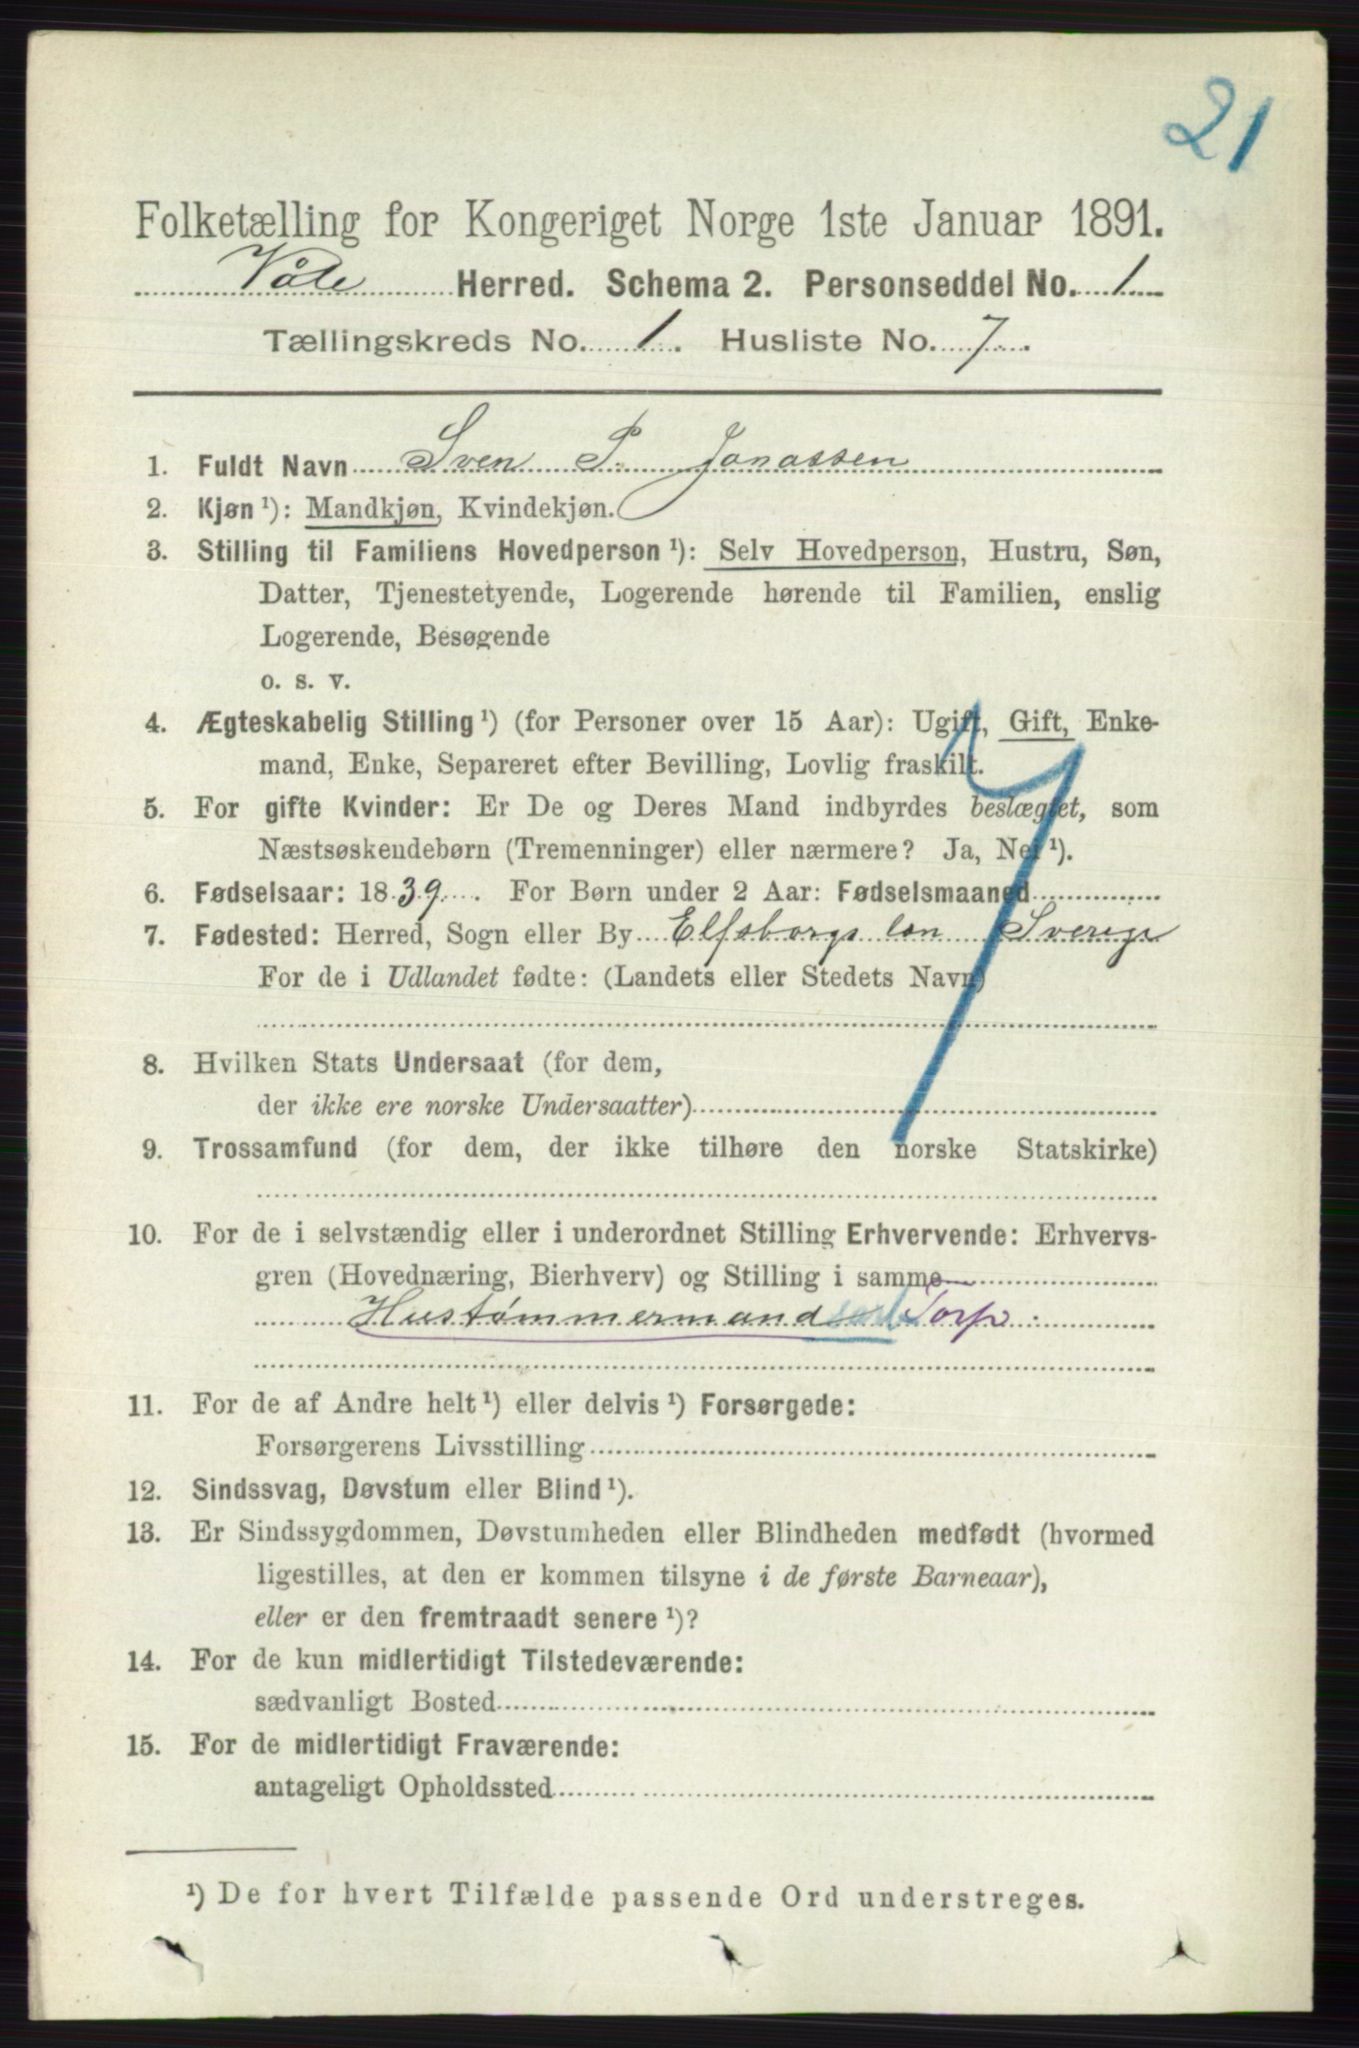 21
Folketælling for Kongeriget Norge 1ste Januar 1891.
Våle Herred. Schema 2. Personseddel No. 1
Tællingskreds No. 1. Husliste No. 7.
1. Fuldt Navn Sven P. Jonassen
2. Kjøn ¹): Mandkjøn, Kvindekjøn.
3. Stilling til Familiens Hovedperson ¹): Selv Hovedperson, Hustru, Søn,
Datter, Tjenestetyende, Logerende hørende til Familien, enslig
Logerende, Besøgende
o. s. v.
4. Ægteskabelig Stilling ¹) (for Personer over 15 Aar): Ugift, Gift, Enke-
mand, Enke, Separeret efter Bevilling, Lovlig fraskilt.
5. For gifte Kvinder: Er De og Deres Mand indbyrdes beslægtet, som
Næstsøskendebørn (Tremenninger) eller nærmere? Ja, Nei ¹).
6. Fødselsaar: 1839. For Børn under 2 Aar: Fødselsmaaned
7. Fødested: Herred, Sogn eller By Elfsborgs len Sverige
For de i Udlandet fødte: (Landets eller Stedets Navn)
8. Hvilken Stats Undersaat (for dem,
der ikke ere norske Undersaatter)
9. Trossamfund (for dem, der ikke tilhøre den norske Statskirke)
10. For de i selvstændig eller i underordnet Stilling Erhvervende: Erhvervs-
gren (Hovednæring, Bierhverv) og Stilling i samme
Hustømmermand Torp
11. For de af Andre helt ¹) eller delvis ¹) Forsørgede:
Forsørgerens Livsstilling
12. Sindssvag, Døvstum eller Blind ¹).
13. Er Sindssygdommen, Døvstumheden eller Blindheden medfødt (hvormed
ligestilles, at den er kommen tilsyne i de første Barneaar),
eller er den fremtraadt senere ¹)?
14. For de kun midlertidigt Tilstedeværende:
sædvanligt Bosted
15. For de midlertidigt Fraværende:
antageligt Opholdssted
¹) De for hvert Tilfælde passende Ord understreges.